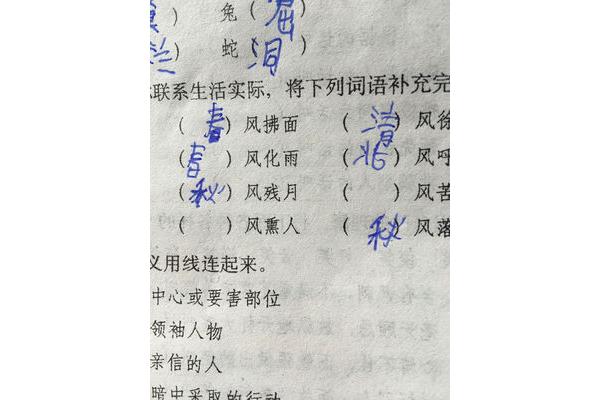 兔（窟
）蛇（洞）
联系生活实际，将下列词语补充完
（春）风拂面（清）风徐
（春）风化雨（北）风呼
（秋）风残月（ ）风苦
（ ）风熏人（秋）风落
义用线连起来。
中心或要害部位
领袖人物
亲信的人
暗中采取的行动